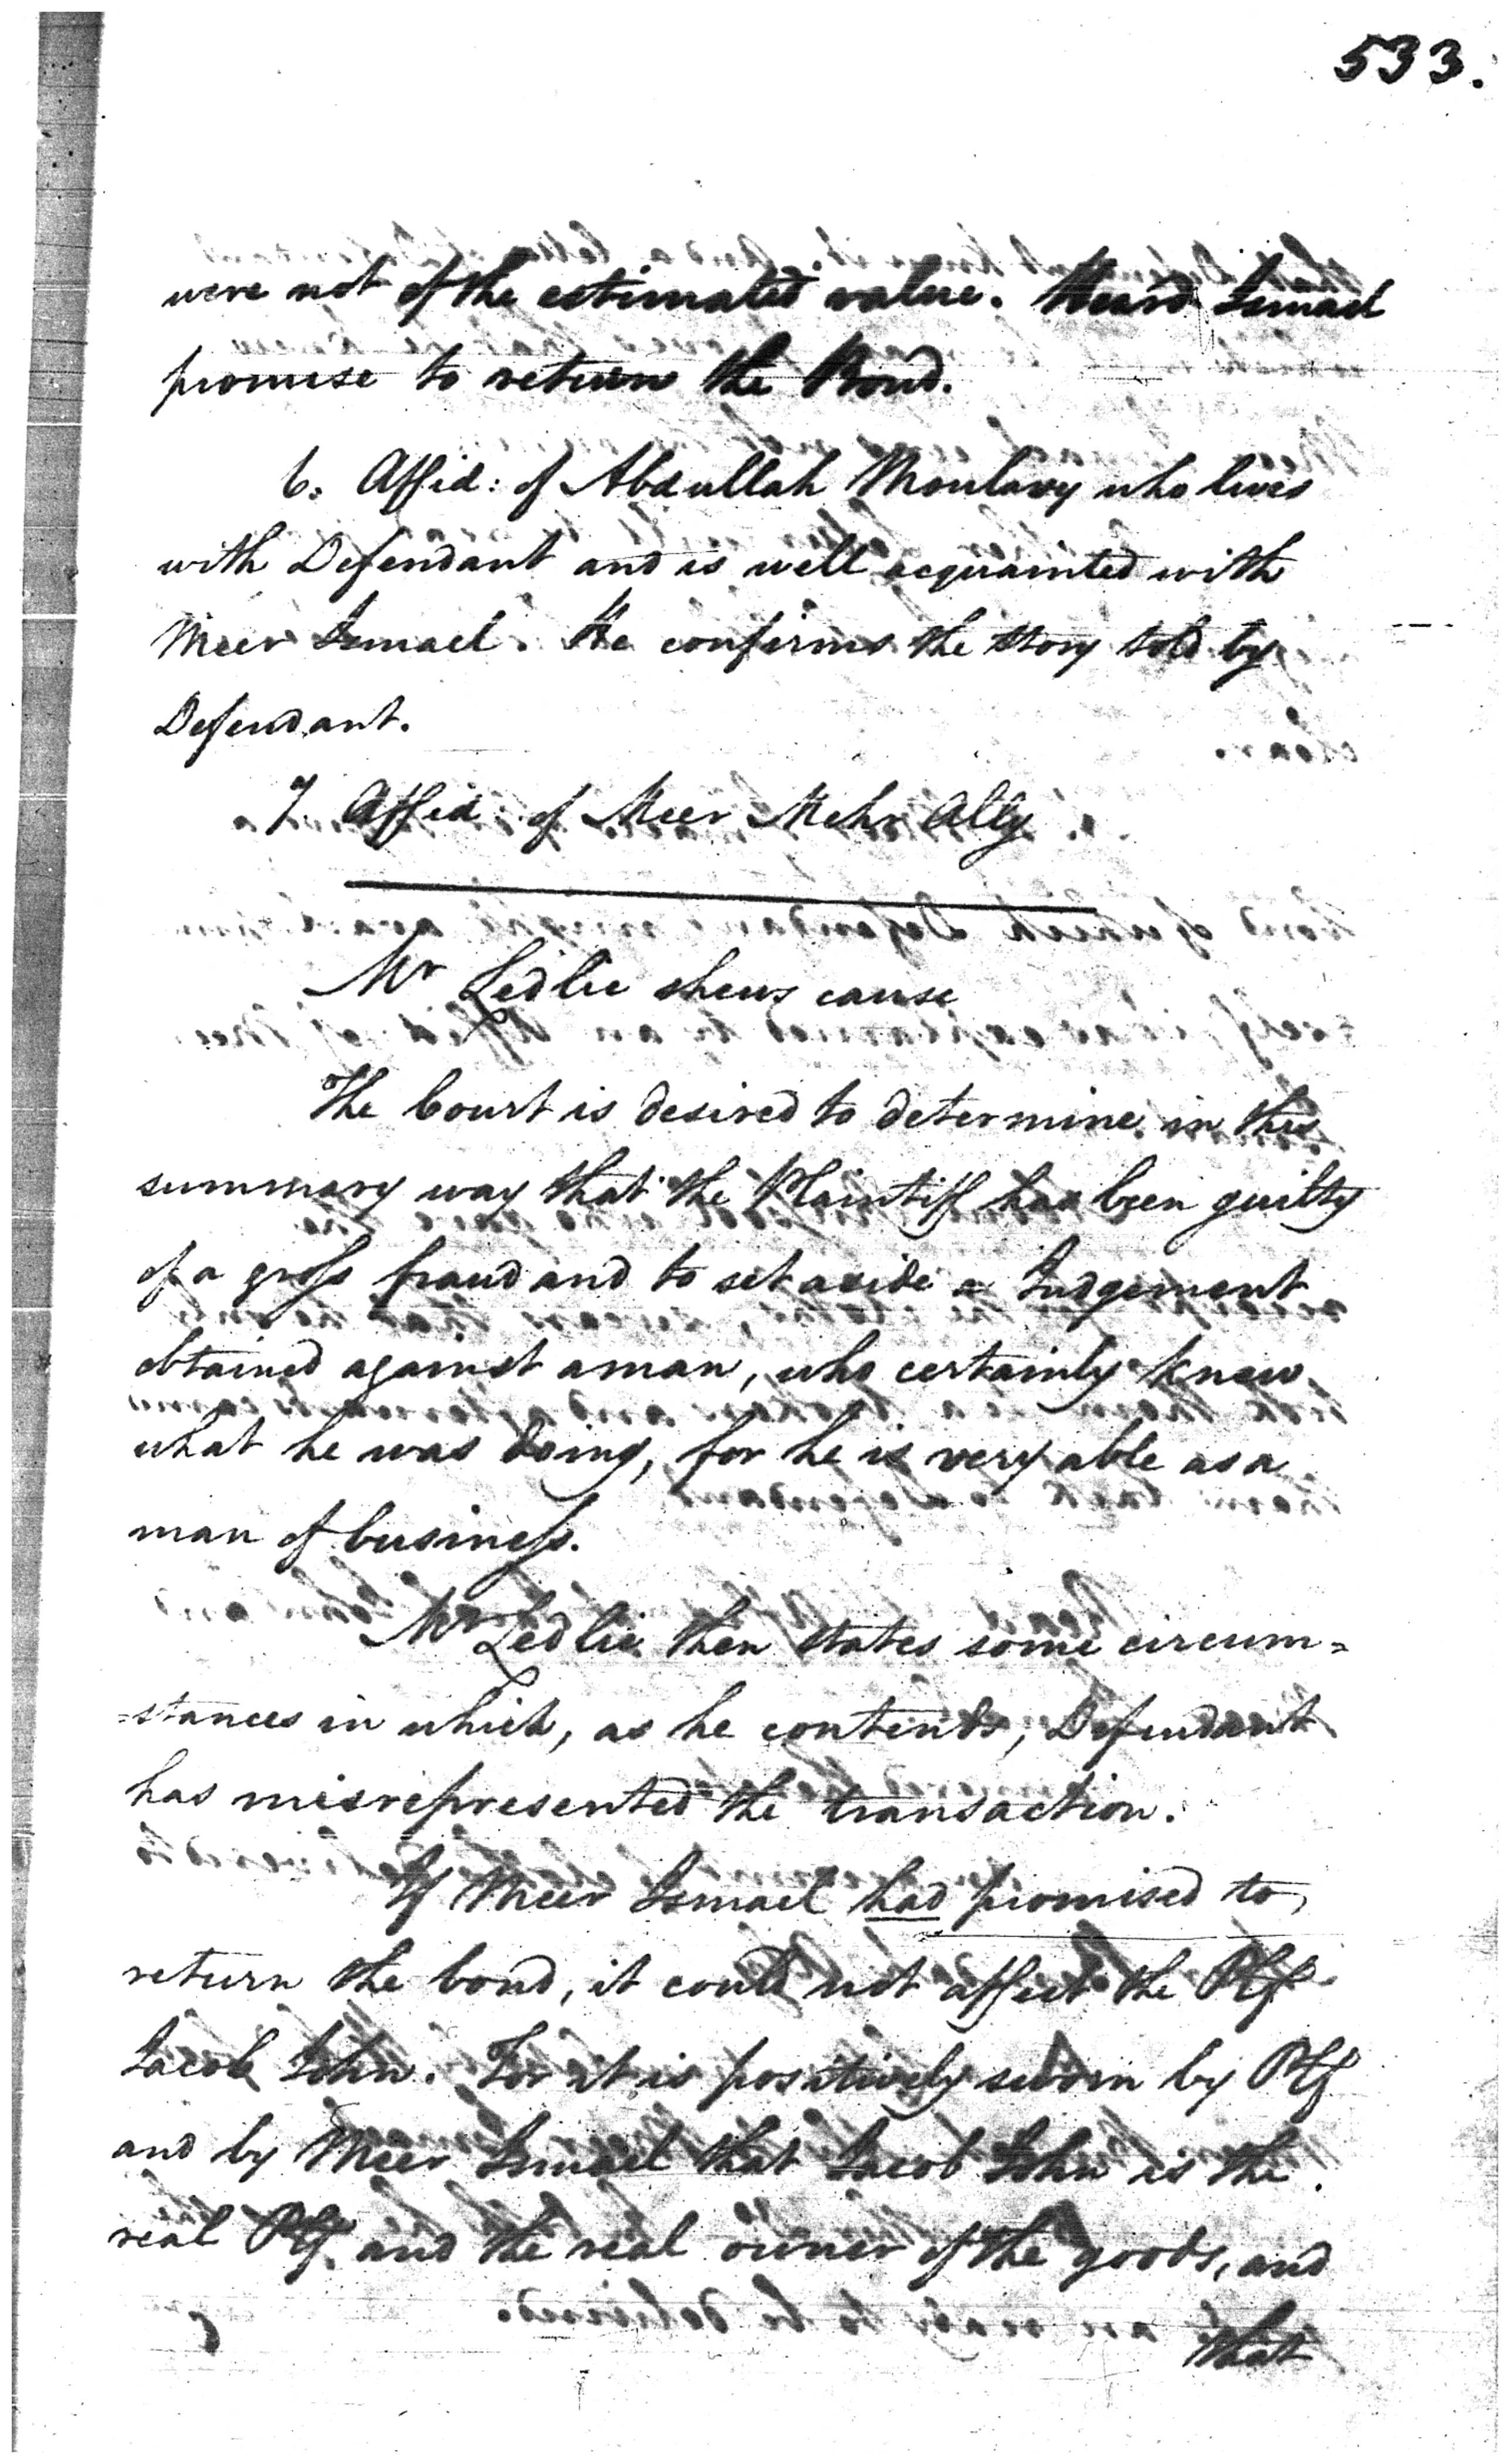 533.
were not of the estimated value. Heard Ismael
promise to return the Bond.
6. Affid: of Abdullah Moulavy who lives
with Defendant and is well acquainted with
Meer Ismael. He confirms the story told by
Defendant.
7 Affid: of Meer Mehr Ally
Mr Ledlie shews cause
The Court is desired to determine in this
summary way that the Plaintiff has been guilty
of a gross fraud and to set aside a Judgement
obtained against a man, who certainly knew
what he was doing, for he is very able as a
man of business.
Mr Ledlie then states some circum=
=stances in which, as he contends, Defendant
has misrepresented the transaction.
If Meer Ismael had promised to
return the bond, it could not affect the Plf
Jacob John. For it is positively sworn by Plf
and by Meer Ismael that Jacob John is the
real Plf. and the real owner of the goods, and
that